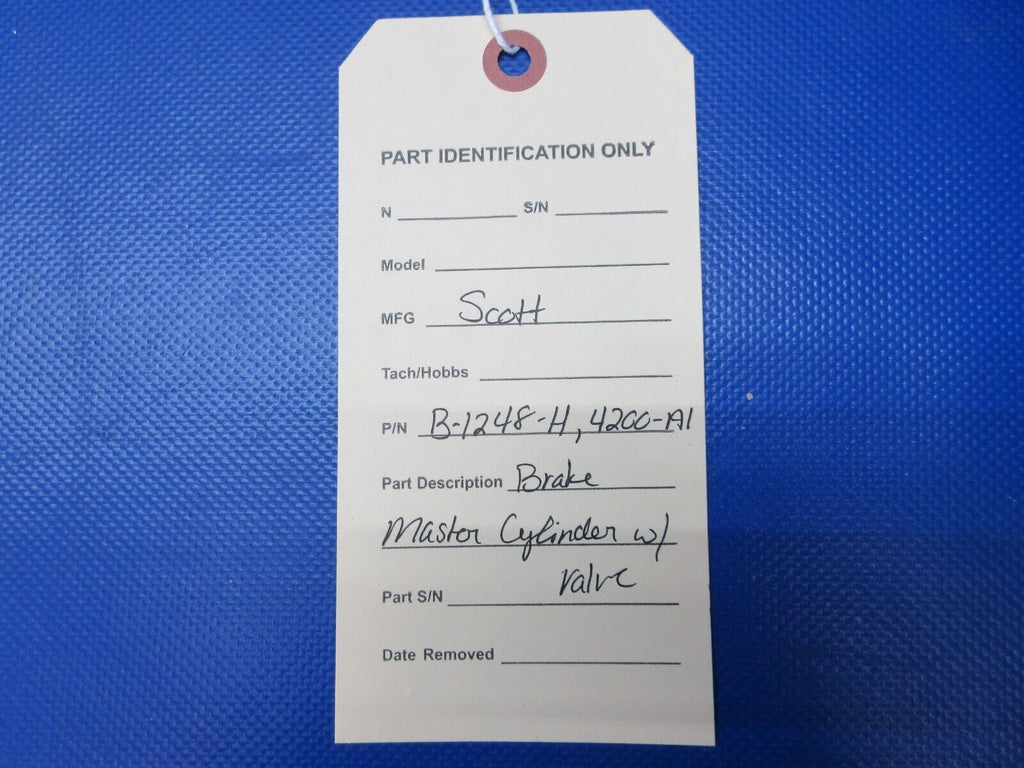 PART IDENTIFICATION ONLY
N S/N
Model
MFG Scott
Tach/Hobbs
P/N B-1248-H, 4200-A1
Part Description Brake
Master Cylinder w/
valve
Part S/N
Date Removed